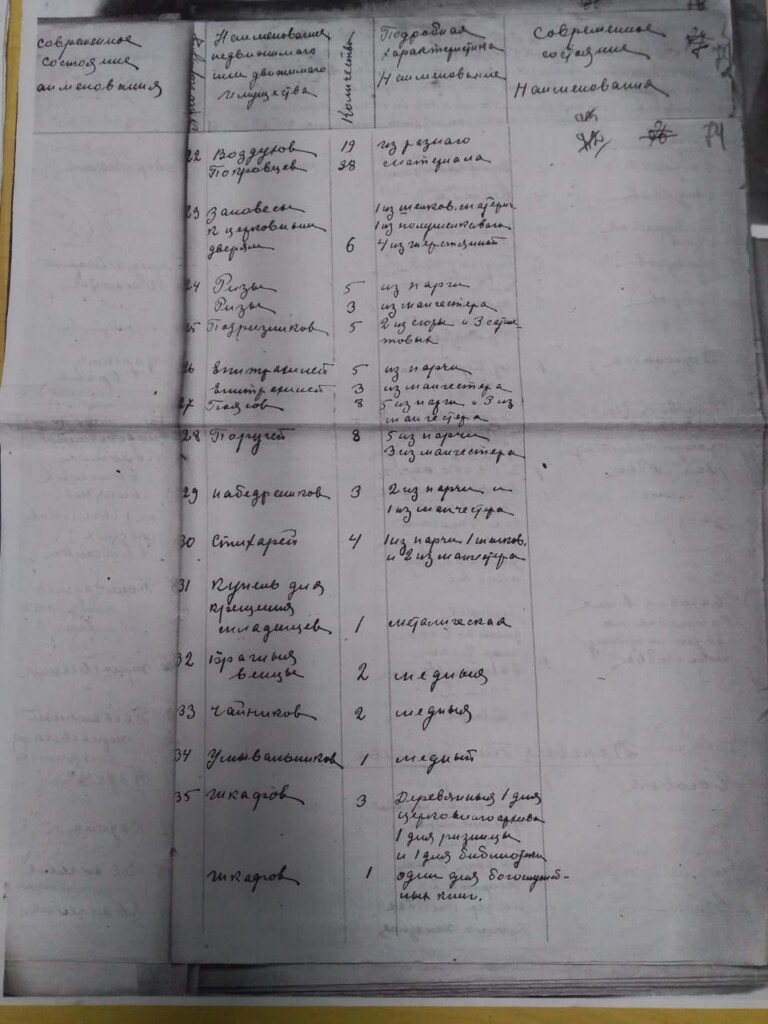 современное
состояние
наименования
Наименование
недвижимого
или движимого
имущества
Количество
Подробная
характеристика
Наименование
Современное
состояние
Наименования
74
22 Воздухов 19 из разнаго
Покровцев 38 материала
23 Зановесы 1 из шелков. матерiи
к церковным 1 из полушелковаго
дверям 6 4 из шерстяной
24 Ризы 5 из парчи
Ризы 3 из манчестера
25 Подризников 5 2 из
и 3
26 Епитрахилей 5 из парчи
Епитрахилей 3 из манчестера
27 Поясов 8 5 из парчи и 3 из
манчестера
28 Поручей 8 5 из парчи
3 из манчестера
29 набедреников 3 2 из парчи и
1 из манчестера
30 Стихарей 4 1 из парчи 1 шолков.
и 2 из манчестера
31 Купель для
крещения
младенцев 1 металическая
32 Брачныя
венцы 2 медныя
33 Чайников 2 медныя
34 Умывальников 1 медный
35 шкафов 3 Деревянныя 1 для
церковного архива
1 для ризницы
и 1 для библиотеки
шкафов 1 один для богослужеб-
ных книг.